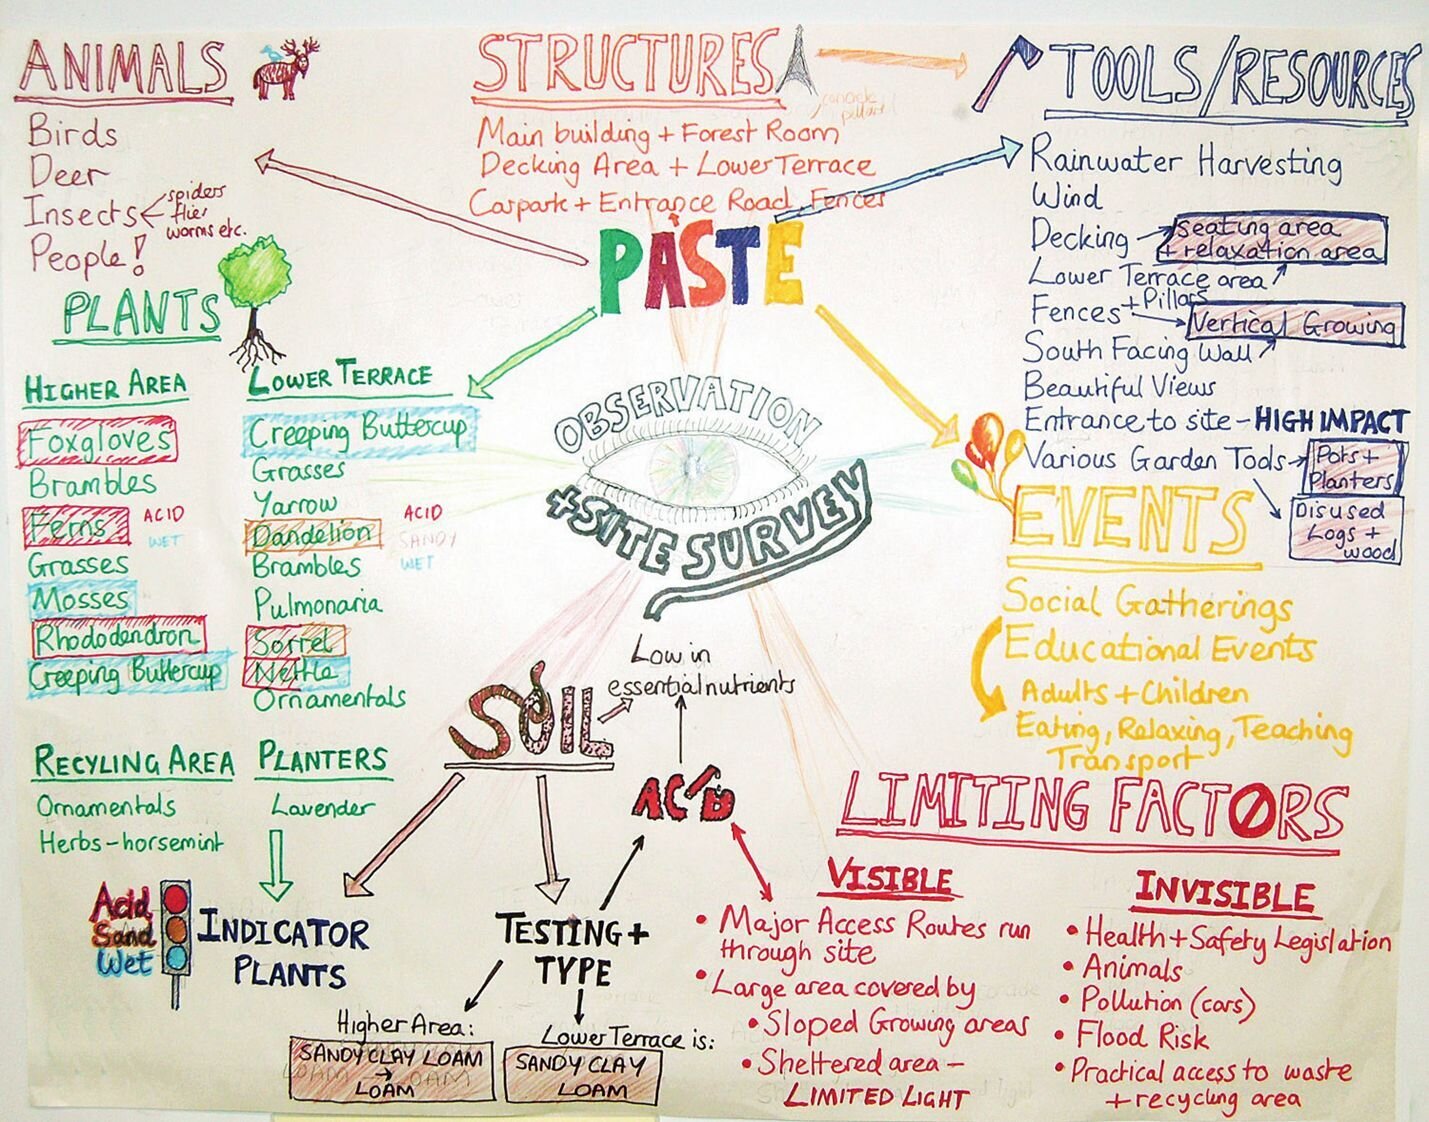 ANIMALS
Birds
Deer
Insects
spiders
flies
worms etc.
People!
STRUCTURES
concrete
pillars
Main building + Forest Room
Decking Area + Lower Terrace
Carpark + Entrance Road, Fences
TOOLS/RESOURCES
Rainwater Harvesting
Wind
Decking
seating area
+ relaxation area
Lower Terrace area
Fences + Pillars
Vertical Growing
South Facing Wall
Beautiful Views
Entrance to site - HIGH IMPACT
Various Garden Tools
Pots +
Planters
Disused
Logs +
wood
PASTE
OBSERVATION
+ SITE SURVEY
PLANTS
HIGHER AREA
Foxgloves
Brambles
Ferns
ACID
WET
Grasses
Mosses
Rhododendron
Creeping Buttercup
LOWER TERRACE
Creeping Buttercup
Grasses
Yarrow
Dandelion
Brambles
ACID
SANDY
WET
Pulmonaria
Sorrel
Nettle
Ornamentals
RECYLING AREA
Ornamentals
Herbs - horsemint
PLANTERS
Lavender
EVENTS
Social Gatherings
Educational Events
Adults + Children
Eating, Relaxing, Teaching
Transport
SOIL
Low in
essential nutrients
ACID
Acid
Sand
Wet
INDICATOR
PLANTS
TESTING +
TYPE
Higher Area:
SANDY CLAY LOAM
LOAM
Lower Terrace is:
SANDY CLAY
LOAM
LIMITING FACTORS
VISIBLE
• Major Access Routes run
through site
• Large area covered by
• Sloped Growing areas
• Sheltered area -
LIMITED LIGHT
INVISIBLE
• Health + Safety Legislation
• Animals
• Pollution (cars)
• Flood Risk
• Practical access to waste
+ recycling area